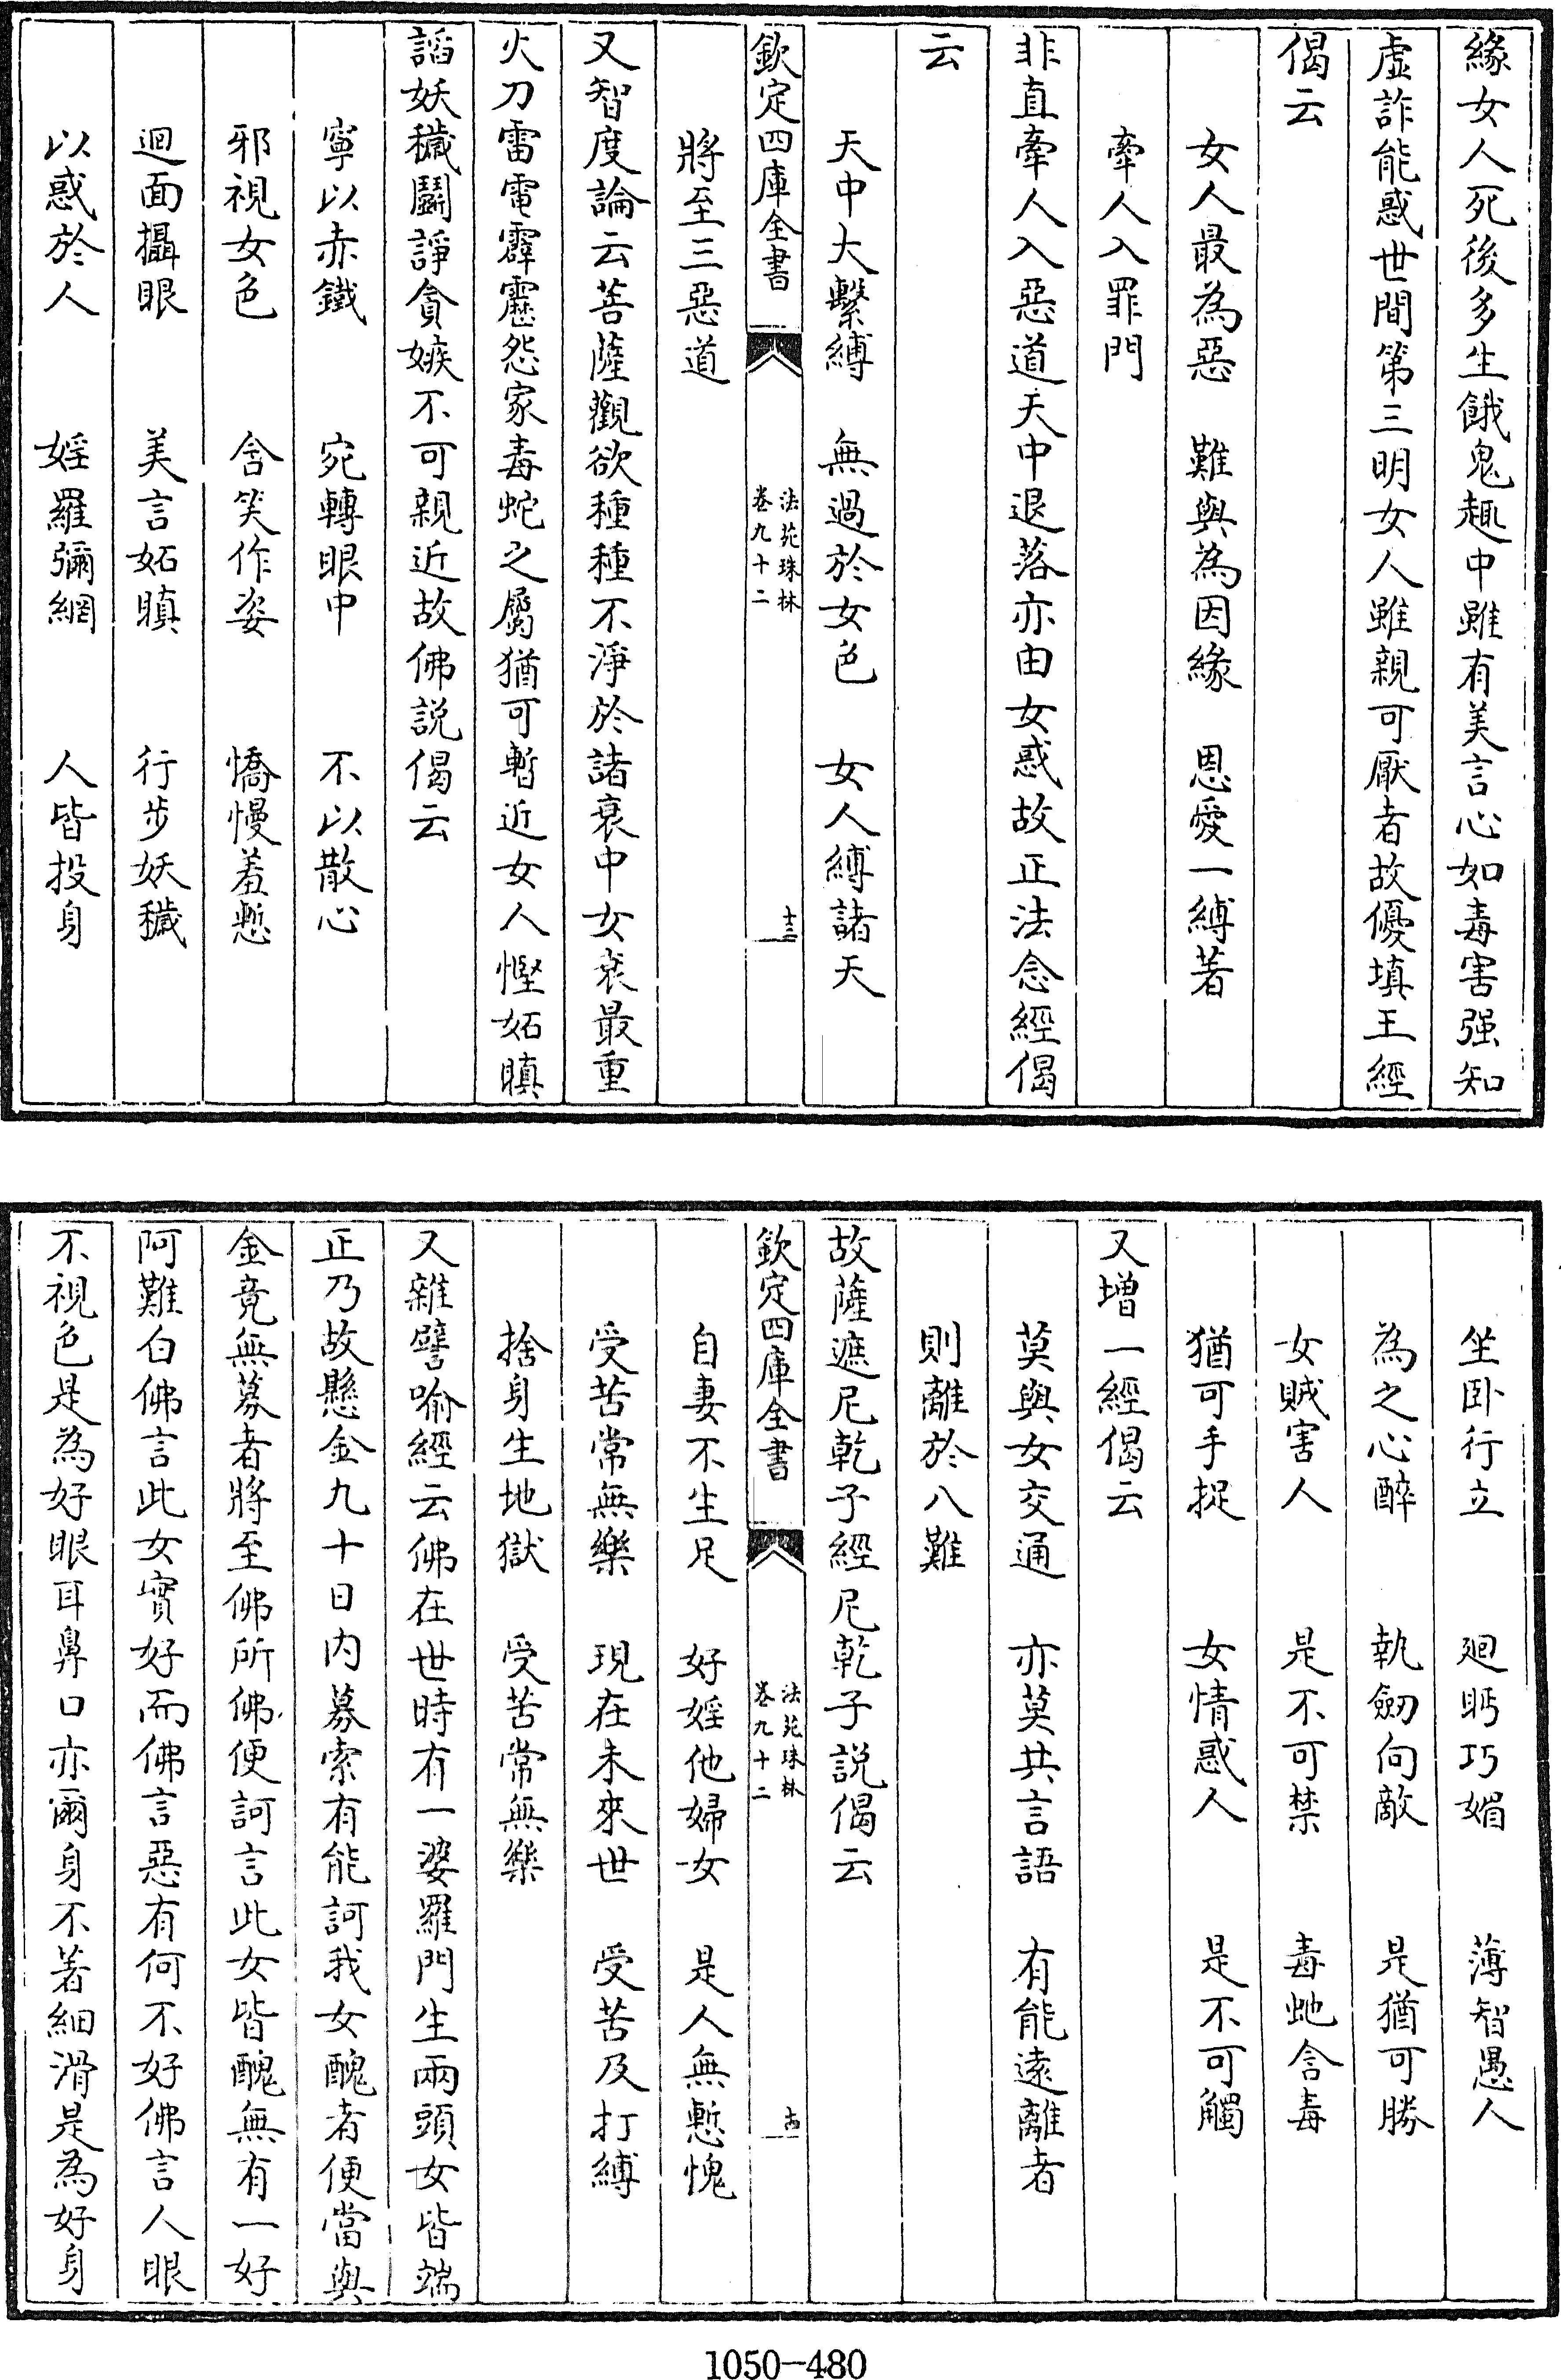 緣女人死後多生餓鬼趣中雖有美言心如毒害强知
虛詐能惑世間第三明女人雖親可厭者故優填王經
偈云
女人最為惡　難與為因緣　恩愛一縛著
牽人入罪門
非直牽人入惡道天中退落亦由女惑故正法念經偈
云
天中大繫縛　無過於女色　女人縛諸天
欽定四庫全書　法苑珠林卷九十二　十三
將至三惡道
又智度論云菩薩觀欲種種不淨於諸衰中女衰最重
火刀雷電霹靂怨家毒蛇之屬猶可暫近女人慳妬瞋
謟妖穢鬬諍貪嫉不可親近故佛説偈云
寧以赤鐵　宛轉眼中　不以散心
邪視女色　含笑作姿　憍慢羞慙
迴面攝眼　美言妬瞋　行步妖穢
以惑於人　婬羅彌網　人皆投身
坐卧行立　廻眄巧媚　薄智愚人
為之心醉　執劒向敵　是猶可勝
女賊害人　是不可禁　毒虵含毒
猶可手捉　女情惑人　是不可觸
又增一經偈云
莫與女交通　亦莫共言語　有能遠離者
則離於八難
故薩遮尼乾子經尼乾子説偈云
欽定四庫全書　法苑珠林卷九十二　十四
自妻不生足　好婬他婦女　是人無慙愧
受苦常無樂　現在未來世　受苦及打縛
捨身生地獄　受苦常無樂
又雜譬喻經云佛在世時有一婆羅門生兩頭女皆端
正乃故懸金九十日内募索有能訶我女醜者便當與
金竟無募者將至佛所佛便訶言此女皆醜無有一好
阿難白佛言此女實好而佛言惡有何不好佛言人眼
不視色是為好眼耳鼻口亦爾身不著細滑是為好身
1050-480